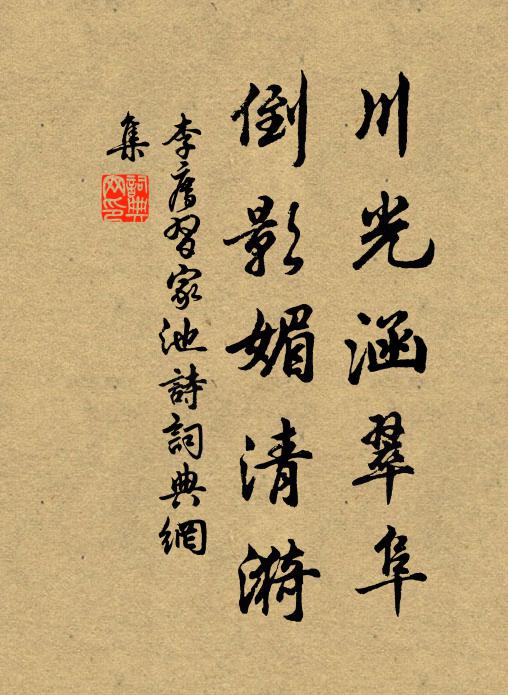 川光涵翠阜
倒影媚清漪
李廌習家池詩詞典網
集
詞典網印